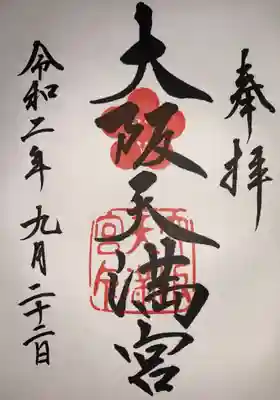 奉拝
大阪天満宮
令和二年九月二十二日